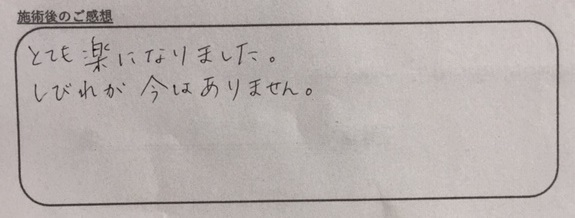 施術後のご感想
とても楽になりました。
しびれが今はありません。